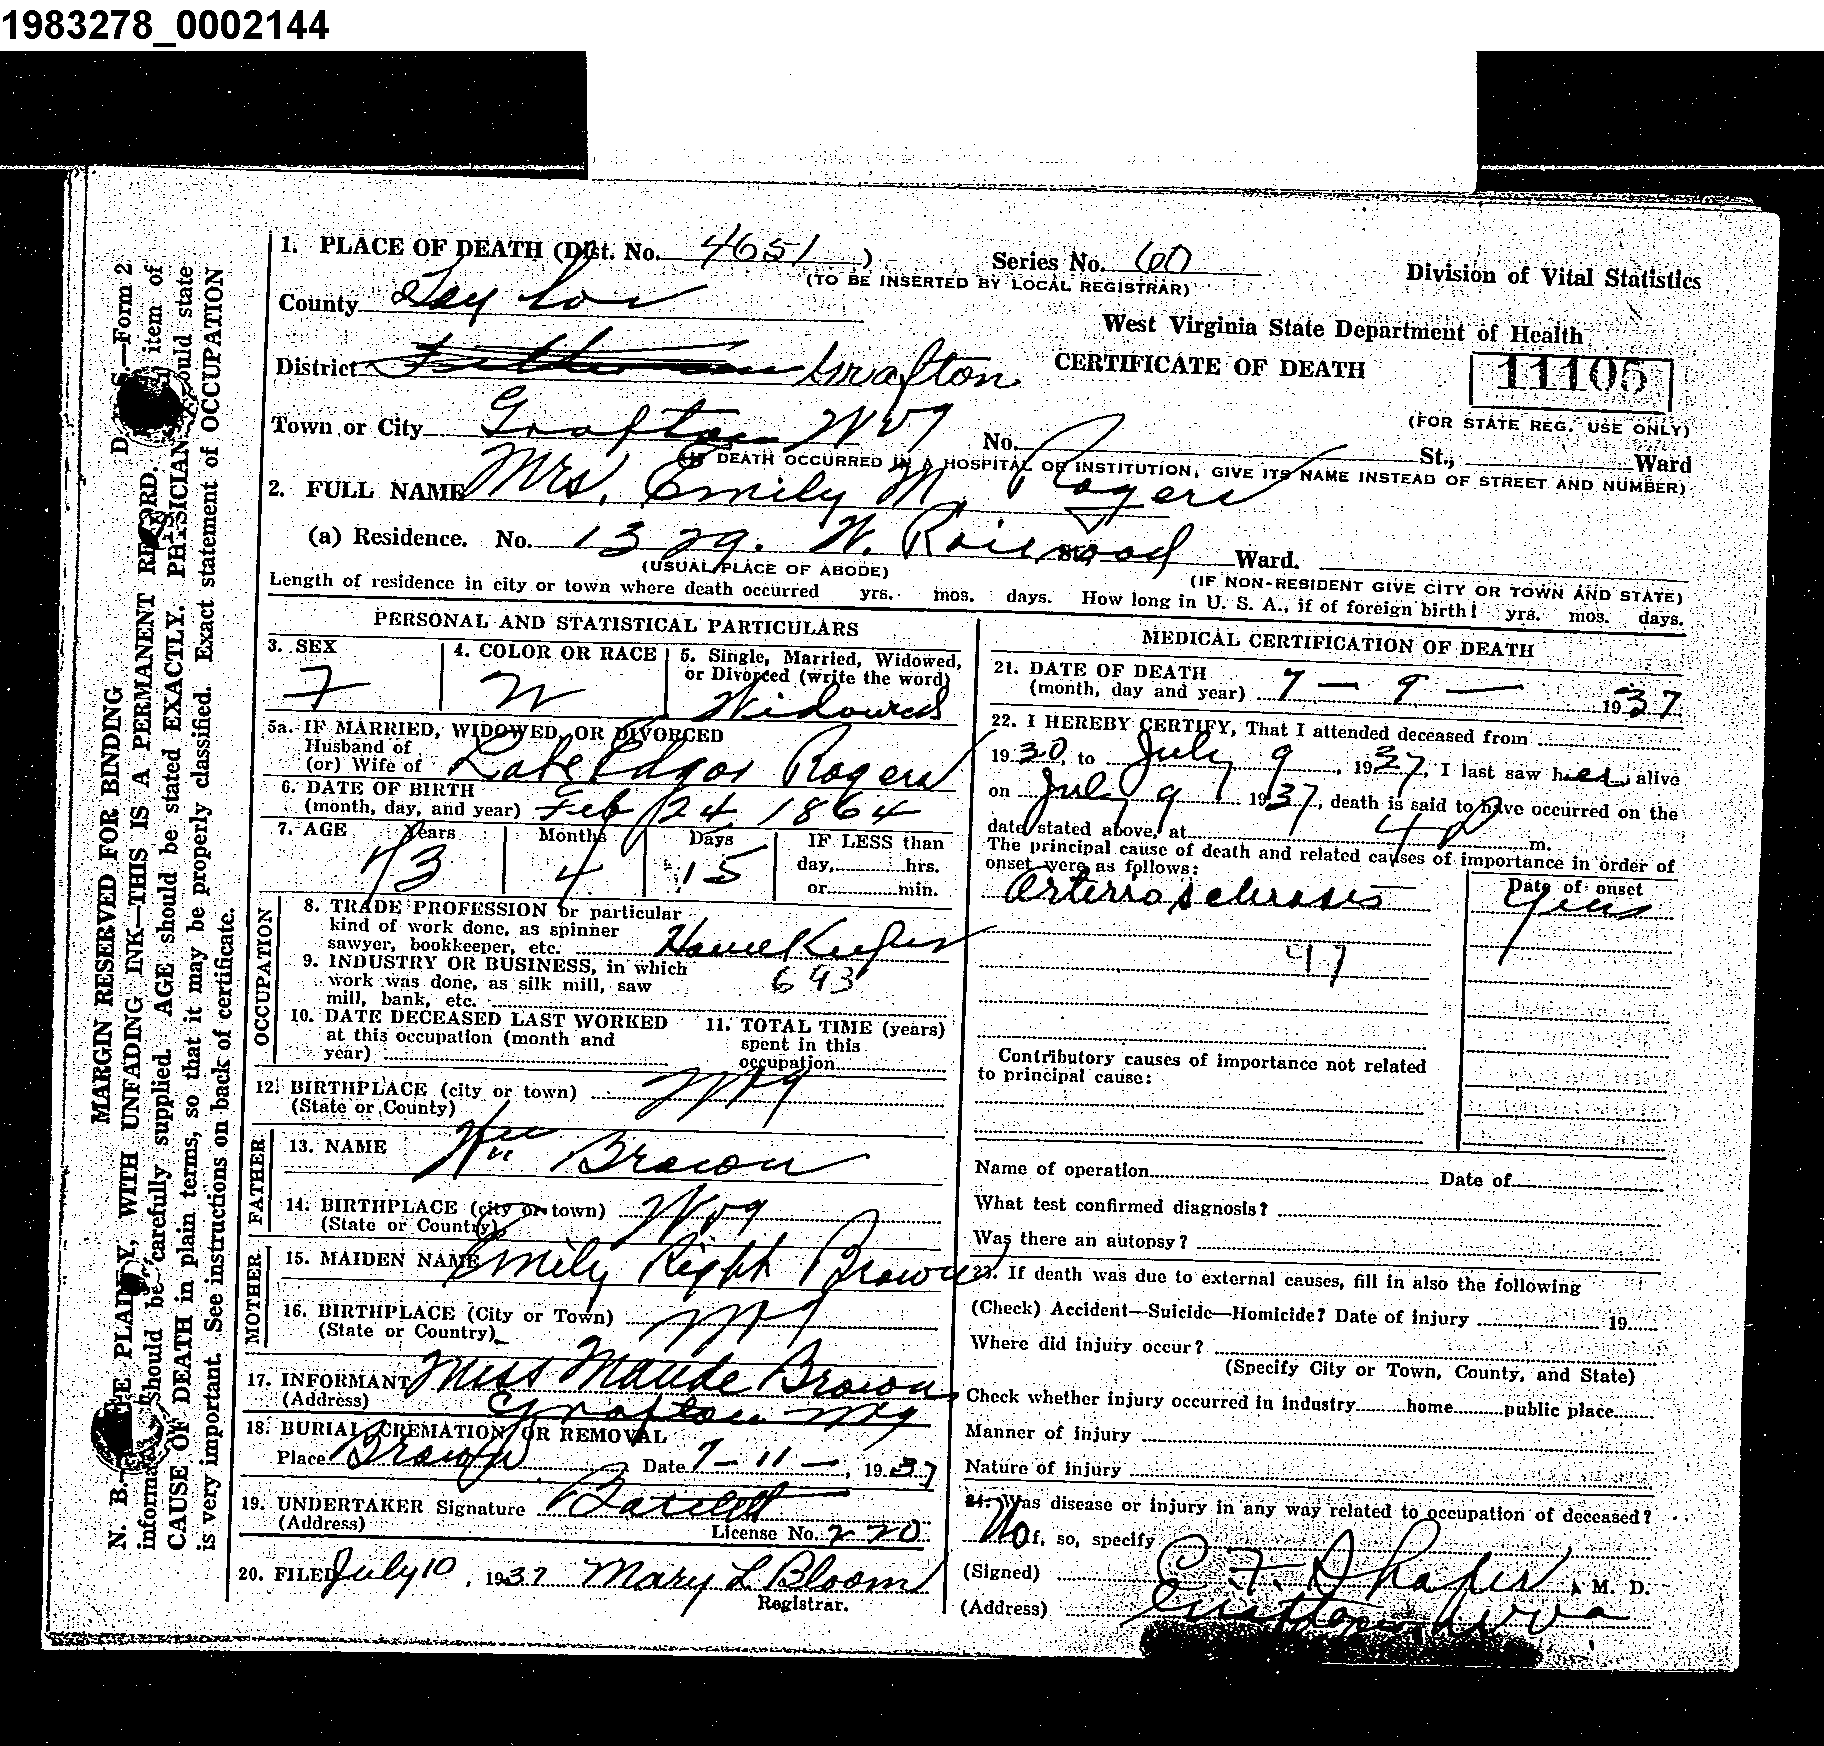 1983278_0002144
1. PLACE OF DEATH (Dist. No. 4651 )
Series No. 60
(TO BE INSERTED BY LOCAL REGISTRAR)
Division of Vital Statistics
County Taylor
West Virginia State Department of Health
District Grafton
CERTIFICATE OF DEATH
11105
(FOR STATE REG. USE ONLY)
Town or City Grafton W Va No. St., Ward
(IF DEATH OCCURRED IN A HOSPITAL OR INSTITUTION, GIVE ITS NAME INSTEAD OF STREET AND NUMBER)
2. FULL NAME Mrs. Emily M. Rogers
(a) Residence. No. 1329. W. Railroad St., Ward.
(USUAL PLACE OF ABODE)
(IF NON-RESIDENT GIVE CITY OR TOWN AND STATE)
Length of residence in city or town where death occurred yrs. mos. days. How long in U. S. A., if of foreign birth? yrs. mos. days.
PERSONAL AND STATISTICAL PARTICULARS
3. SEX
F
4. COLOR OR RACE
W
5. Single, Married, Widowed,
or Divorced (write the word)
Widowed
5a. IF MARRIED, WIDOWED, OR DIVORCED
Husband of
(or) Wife of Late Edgar Rogers
6. DATE OF BIRTH
(month, day, and year) Feb 24 1864
7. AGE Years Months Days IF LESS than
73 4 15 day, hrs.
or min.
OCCUPATION
8. TRADE PROFESSION or particular
kind of work done, as spinner
sawyer, bookkeeper, etc. House Keeper
9. INDUSTRY OR BUSINESS, in which 693
work was done, as silk mill, saw
mill, bank, etc.
10. DATE DECEASED LAST WORKED
at this occupation (month and
year)
11. TOTAL TIME (years)
spent in this
occupation
12. BIRTHPLACE (city or town) W Va
(State or County)
FATHER
13. NAME Wm Brown
14. BIRTHPLACE (city or town) W Va
(State or Country)
MOTHER
15. MAIDEN NAME Emily Right Brown
16. BIRTHPLACE (City or Town) W Va
(State or Country)
17. INFORMANT Miss Maude Brown
(Address) Grafton W Va
18. BURIAL, CREMATION OR REMOVAL
Place Brown Date 7-11-, 1937
19. UNDERTAKER Signature
(Address) License No. 220
20. FILED July 10, 1937 Mary L Bloom
Registrar.
MEDICAL CERTIFICATION OF DEATH
21. DATE OF DEATH
(month, day and year) 7 - 9 - 1937
22. I HEREBY CERTIFY, That I attended deceased from
1930, to July 9, 1937, I last saw her alive
on July 9 1937, death is said to have occurred on the
date stated above, at 4 P m.
The principal cause of death and related causes of importance in order of
onset were as follows:
Date of onset
Arteriosclerosis Years
97
Contributory causes of importance not related
to principal cause:
Name of operation Date of
What test confirmed diagnosis?
Was there an autopsy?
23. If death was due to external causes, fill in also the following
(Check) Accident—Suicide—Homicide? Date of injury 19
Where did injury occur?
(Specify City or Town, County, and State)
Check whether injury occurred in industry home public place
Manner of injury
Nature of injury
24. Was disease or injury in any way related to occupation of deceased?
No If, so, specify
(Signed) E. F. Shafer, M. D.
(Address) Grafton, W Va
MARGIN RESERVED FOR BINDING
N. B. PLAINLY, WITH UNFADING INK—THIS IS A PERMANENT RECORD. item of
should be carefully supplied. AGE should be stated EXACTLY. PHYSICIAN should state
CAUSE OF DEATH in plain terms, so that it may be properly classified. Exact statement of OCCUPATION
is very important. See instructions on back of certificate.
Form 2